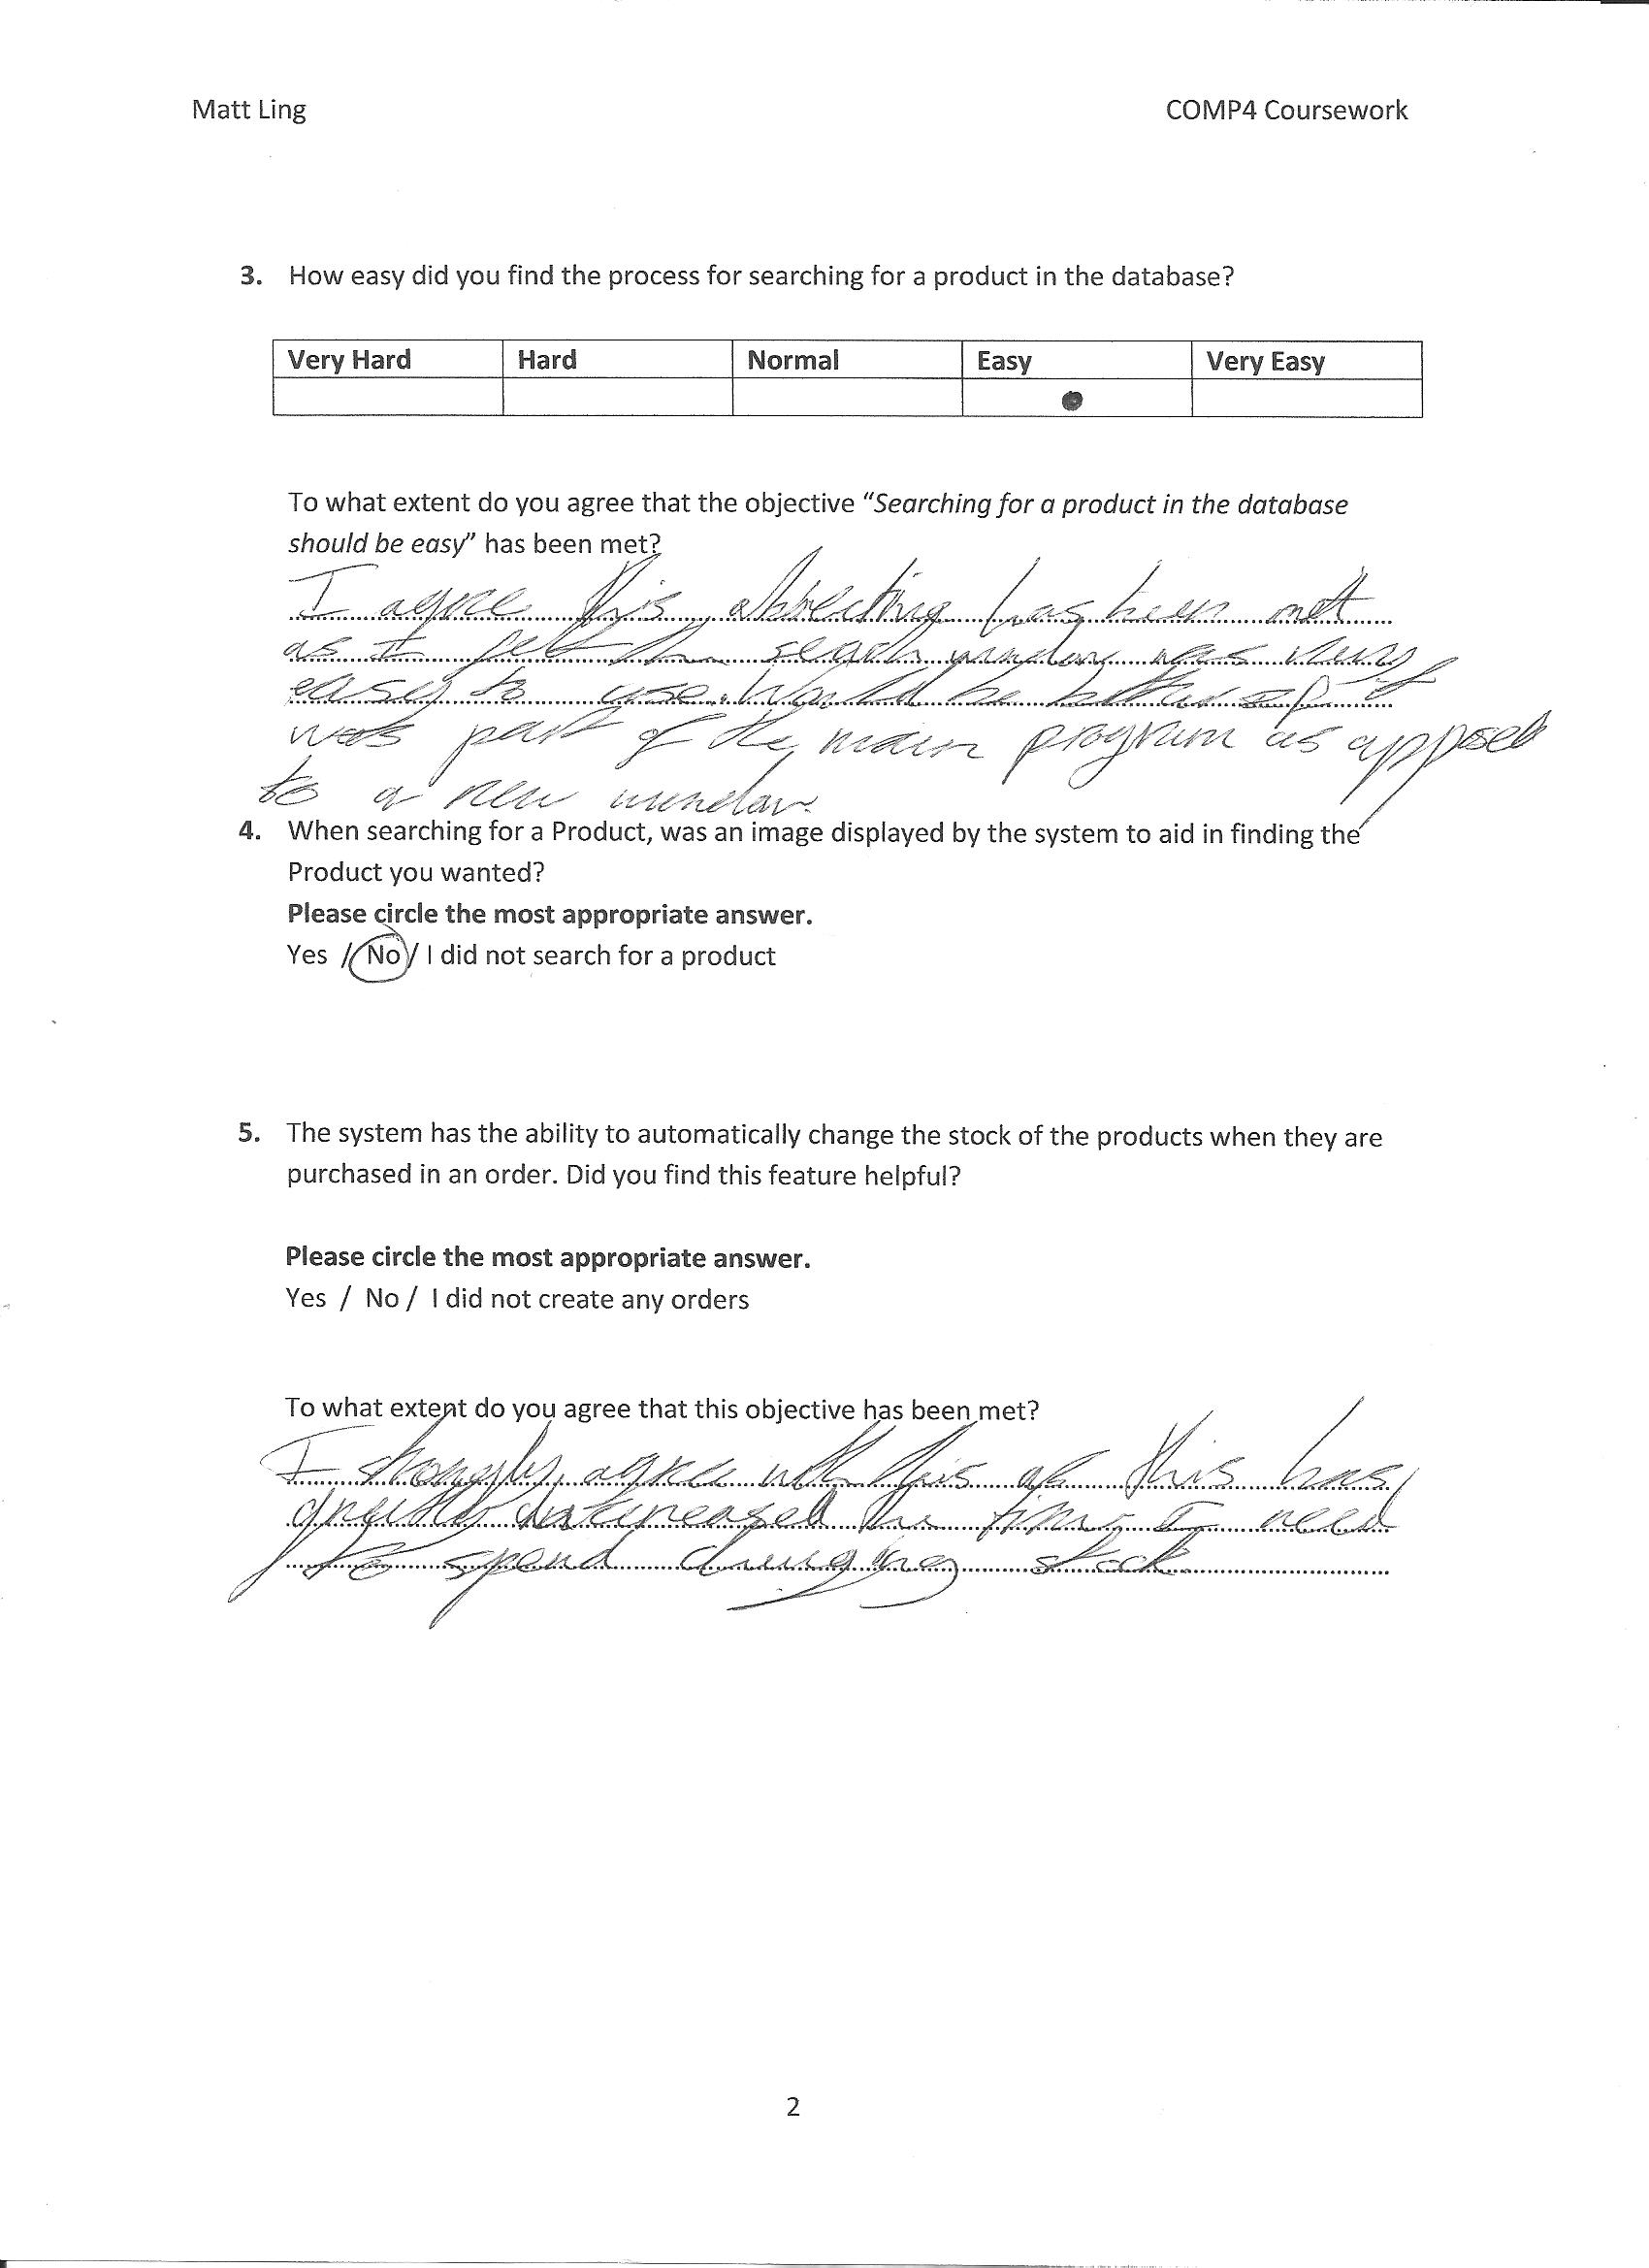 Matt Ling COMP4 Coursework
3. How easy did you find the process for searching for a product in the database?
Very Hard Hard Normal Easy Very Easy
To what extent do you agree that the objective “Searching for a product in the database
should be easy” has been met?
I agree this objective has been met
as I felt the search window was very
easy to use. Would be better if it
was part of the main program as opposed
to a new window.
4. When searching for a Product, was an image displayed by the system to aid in finding the
Product you wanted?
Please circle the most appropriate answer.
Yes / No / I did not search for a product
5. The system has the ability to automatically change the stock of the products when they are
purchased in an order. Did you find this feature helpful?
Please circle the most appropriate answer.
Yes / No / I did not create any orders
To what extent do you agree that this objective has been met?
I strongly agree with this as this has
greatly the time I need
to spend changing stock.
2